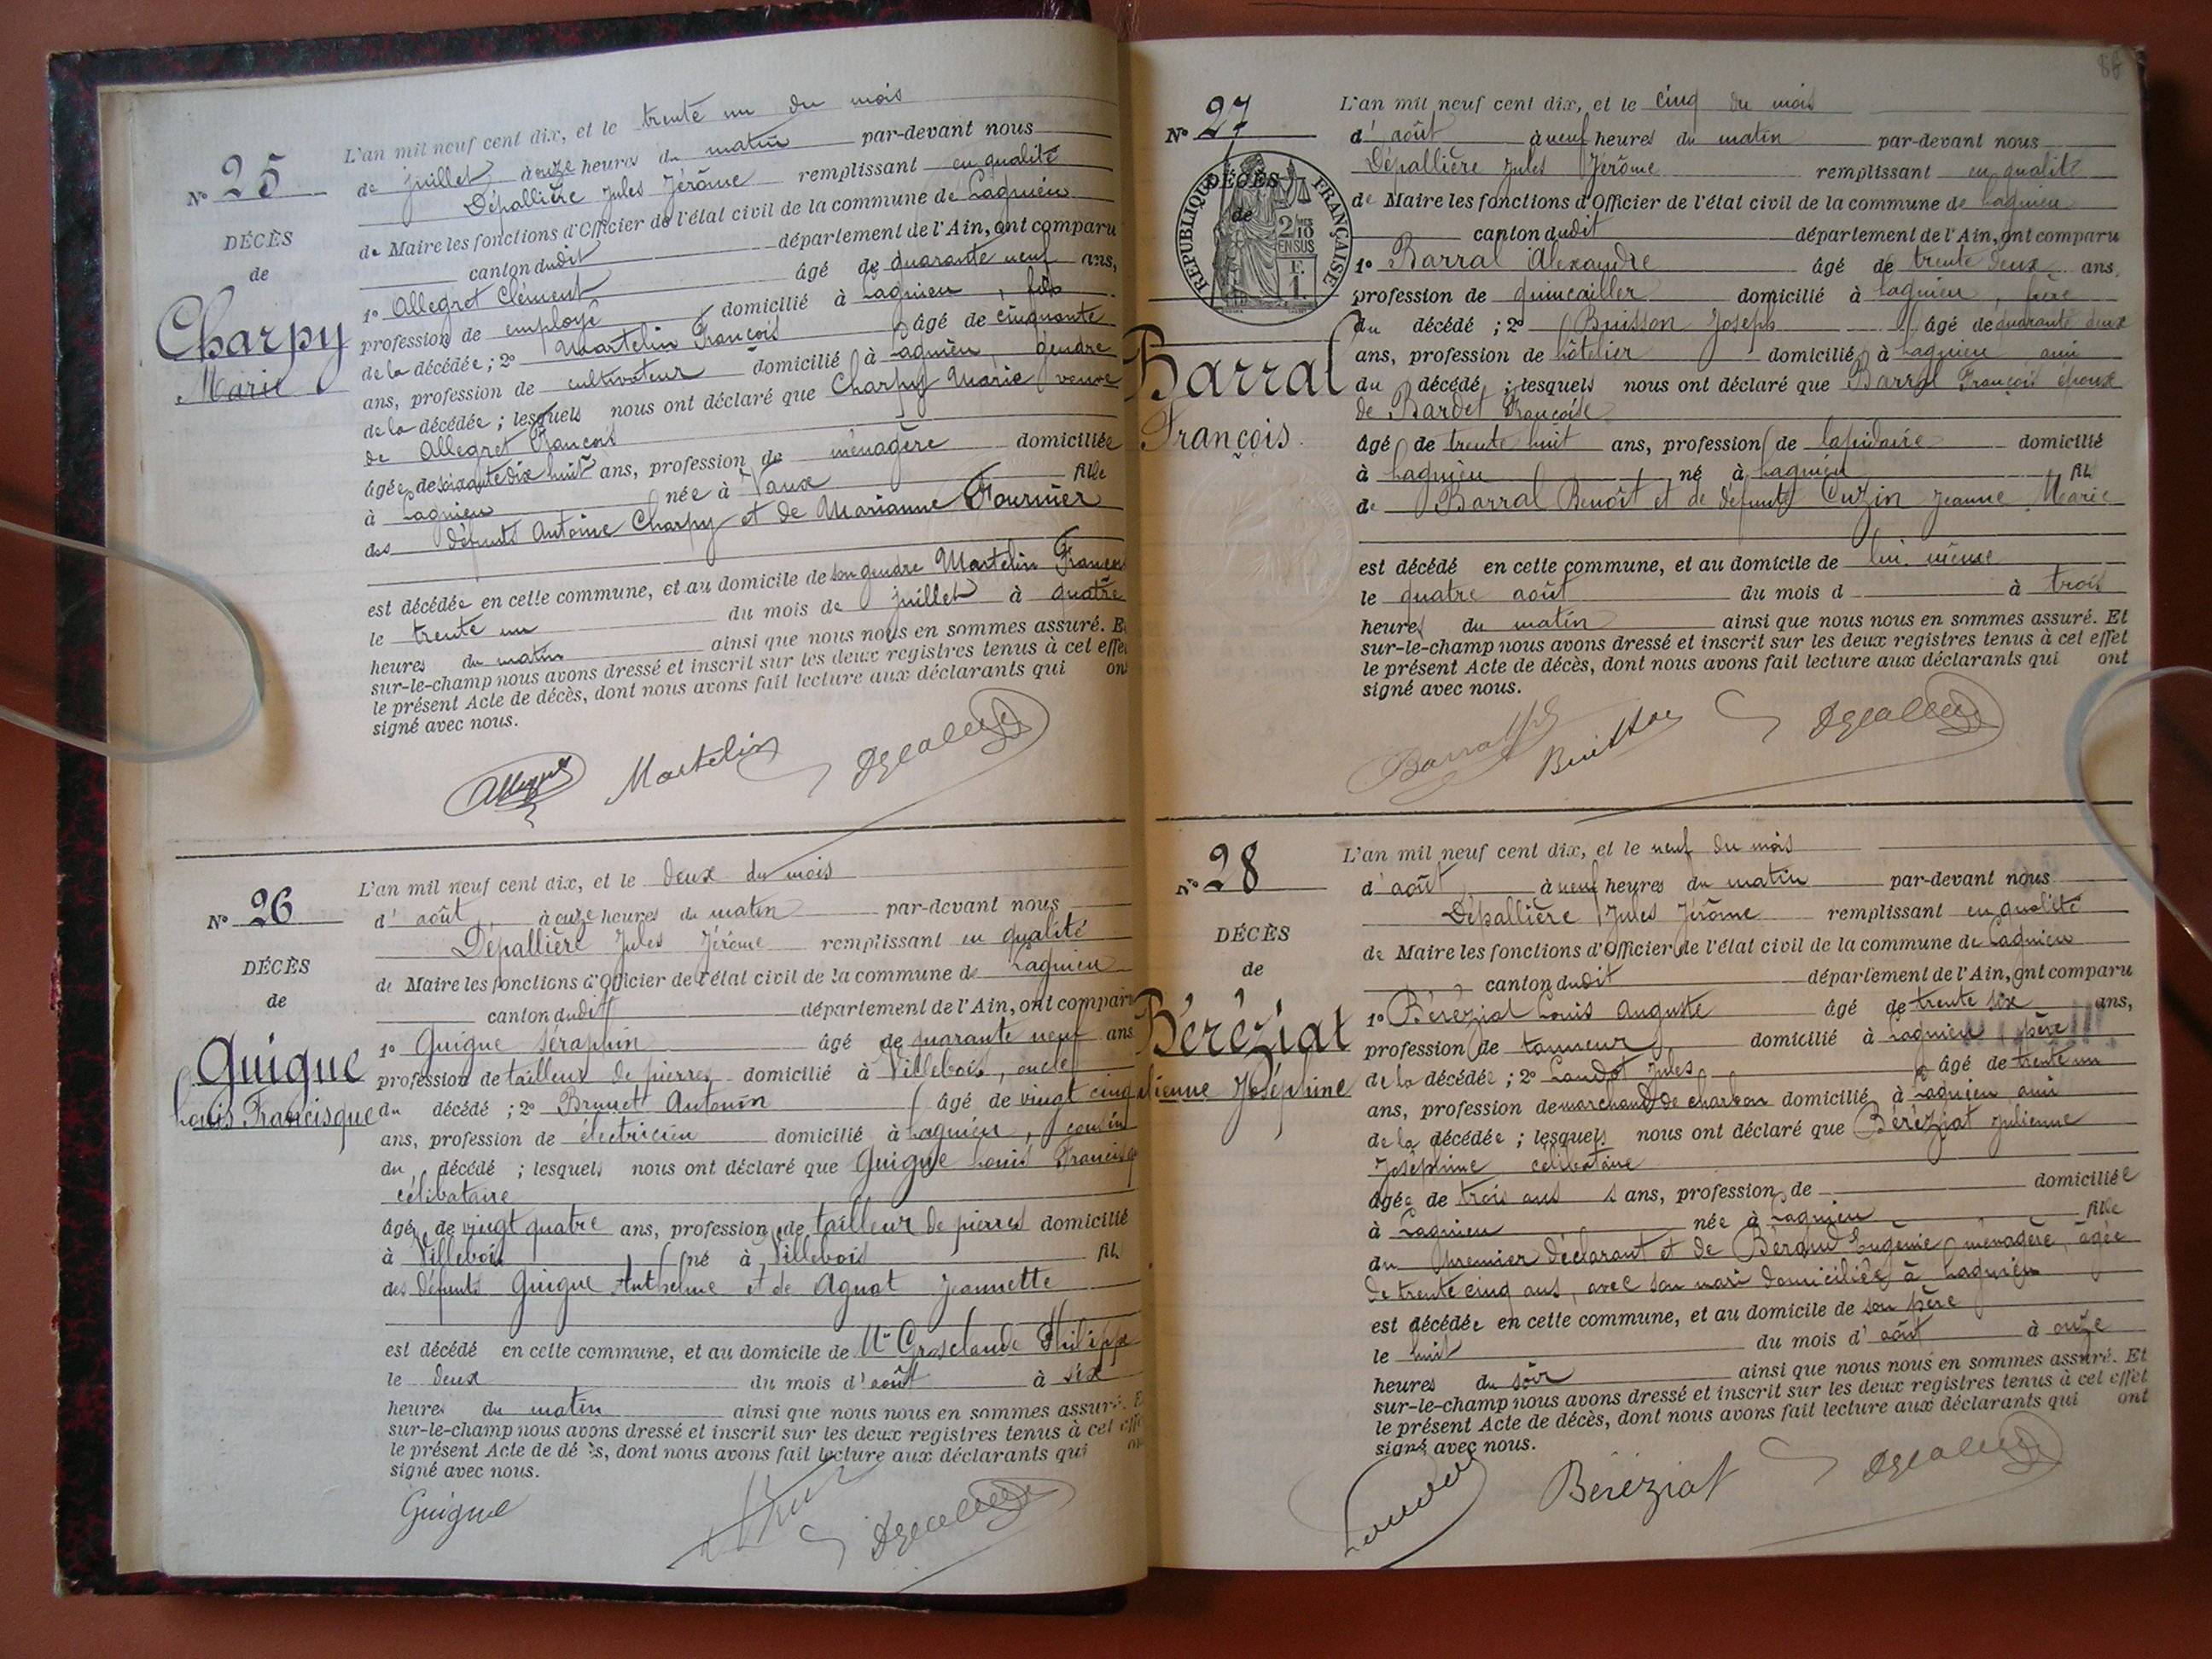 L'an mil neuf cent dix, et le trente un du mois
N° 25
de juillet à onze heures du matin par-devant nous
Dépallière Jules Jérôme remplissant en qualité
DÉCÈS
de Maire les fonctions d'Officier de l'état civil de la commune de Lagnieu
de
canton dudit département de l'Ain, ont comparu
1° Allegret Clément âgé de quarante neuf ans,
Charpy
Marie
profession de employé domicilié à Lagnieu, fils
de la décédée ; 2° Martelin François âgé de cinquante
ans, profession de cultivateur domicilié à Lagnieu, gendre
de la décédée ; lesquels nous ont déclaré que Charpy Marie veuve
de Allegret François
âgée de soixante dix huit ans, profession de ménagère domiciliée
à Lagnieu née à Vaux fille
des défunts Antoine Charpy et de Marianne Fournier
est décédée en cette commune, et au domicile de son gendre Martelin François
le trente un du mois de juillet à quatre
heures du matin ainsi que nous nous en sommes assuré. Et
sur-le-champ nous avons dressé et inscrit sur les deux registres tenus à cet effet
le présent Acte de décès, dont nous avons fait lecture aux déclarants qui ont
signé avec nous.
Martelin
L'an mil neuf cent dix, et le deux du mois
N° 26
d'août à onze heures du matin par-devant nous
Dépallière Jules Jérôme remplissant en qualité
DÉCÈS
de Maire les fonctions d'Officier de l'état civil de la commune de Lagnieu
de
canton dudit département de l'Ain, ont comparu
1° Guigue Séraphin âgé de quarante neuf ans
Guigue
Louis Francisque
profession de tailleur de pierres domicilié à Villebois, oncle
du décédé ; 2° Brunet Antonin âgé de vingt cinq
ans, profession de électricien domicilié à Lagnieu, cousin
du décédé ; lesquels nous ont déclaré que Guigue Louis Francisque
célibataire
âgé de vingt quatre ans, profession de tailleur de pierres domicilié
à Villebois né à Villebois fils
des défunts Guigue Anthelme et de Agnat Jeannette
est décédé en cette commune, et au domicile de Mr Grosclaude Philippe
le deux du mois d'août à six
heures du matin ainsi que nous nous en sommes assuré. Et
sur-le-champ nous avons dressé et inscrit sur les deux registres tenus à cet effet
le présent Acte de décès, dont nous avons fait lecture aux déclarants qui ont
signé avec nous.
Guigue
86
L'an mil neuf cent dix, et le cinq du mois
N° 27
d'août à neuf heures du matin par-devant nous
Dépallière Jules Jérôme remplissant en qualité
DÉCÈS
RÉPUBLIQUE FRANÇAISE
2/10 EN SUS
F. 1.
de Maire les fonctions d'Officier de l'état civil de la commune de Lagnieu
de
canton dudit département de l'Ain, ont comparu
1° Barral Alexandre âgé de trente deux ans,
profession de quincailler domicilié à Lagnieu, frère
du décédé ; 2° Buisson Joseph âgé de quarante deux
Barral
François
ans, profession de hôtelier domicilié à Lagnieu ami
du décédé ; lesquels nous ont déclaré que Barral François époux
de Bardet Françoise
âgé de trente huit ans, profession de lapidaire domicilié
à Lagnieu né à Lagnieu fils
de Barral Benoît et de défunte Cuzin Jeanne Marie
est décédé en cette commune, et au domicile de lui même
le quatre août du mois d à trois
heures du matin ainsi que nous nous en sommes assuré. Et
sur-le-champ nous avons dressé et inscrit sur les deux registres tenus à cet effet
le présent Acte de décès, dont nous avons fait lecture aux déclarants qui ont
signé avec nous.
Barral Buisson
L'an mil neuf cent dix, et le neuf du mois
N° 28
d'août à neuf heures du matin par-devant nous
Dépallière Jules Jérôme remplissant en qualité
DÉCÈS
de Maire les fonctions d'Officier de l'état civil de la commune de Lagnieu
de
canton dudit département de l'Ain, ont comparu
1° Béréziat Louis Auguste âgé de trente six ans,
Béréziat
Julienne Joséphine
profession de tanneur domicilié à Lagnieu père
de la décédée ; 2° Landot Jules âgé de trente un
ans, profession de marchand de charbon domicilié à Lagnieu ami
de la décédée ; lesquels nous ont déclaré que Béréziat Julienne
Joséphine célibataire
âgée de trois ans ans, profession de domiciliée
à Lagnieu née à Lagnieu fille
du premier déclarant et de Béraud Eugénie ménagère, âgée
de trente cinq ans, avec son mari domiciliée à Lagnieu
est décédée en cette commune, et au domicile de son père
le huit du mois d'août à onze
heures du soir ainsi que nous nous en sommes assuré. Et
sur-le-champ nous avons dressé et inscrit sur les deux registres tenus à cet effet
le présent Acte de décès, dont nous avons fait lecture aux déclarants qui ont
signé avec nous.
Béréziat